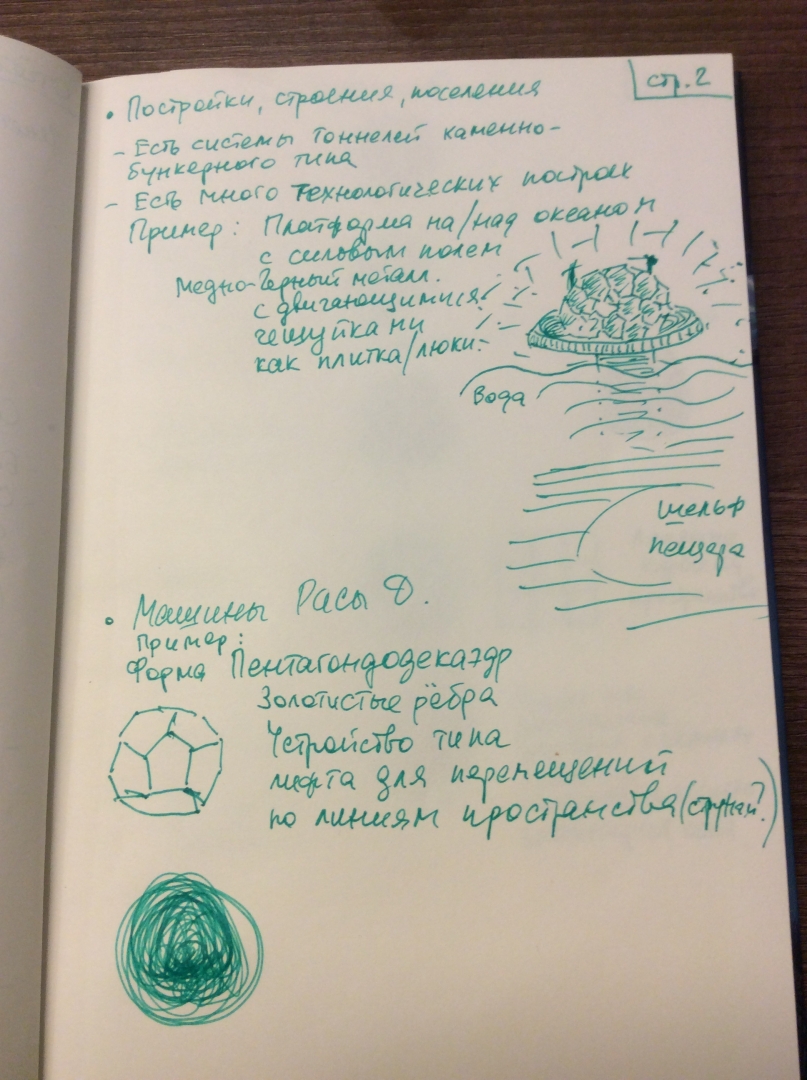 стр. 2
• Постройки, строения, поселения
- Есть системы тоннелей каменно-
бункерного типа
- Есть много технологических построек
Пример: Платформа на/над океаном
с силовым полем
Медно-Черный металл.
с двигающимися
чешуйками
как плитка/люки.
Вода
шельф
пещера
• Машины Расы
Пример:
Форма Пентагондодекаэдр
Золотистые рёбра
Устройство типа
лифта для перемещений
по линиям пространства (струнам?)